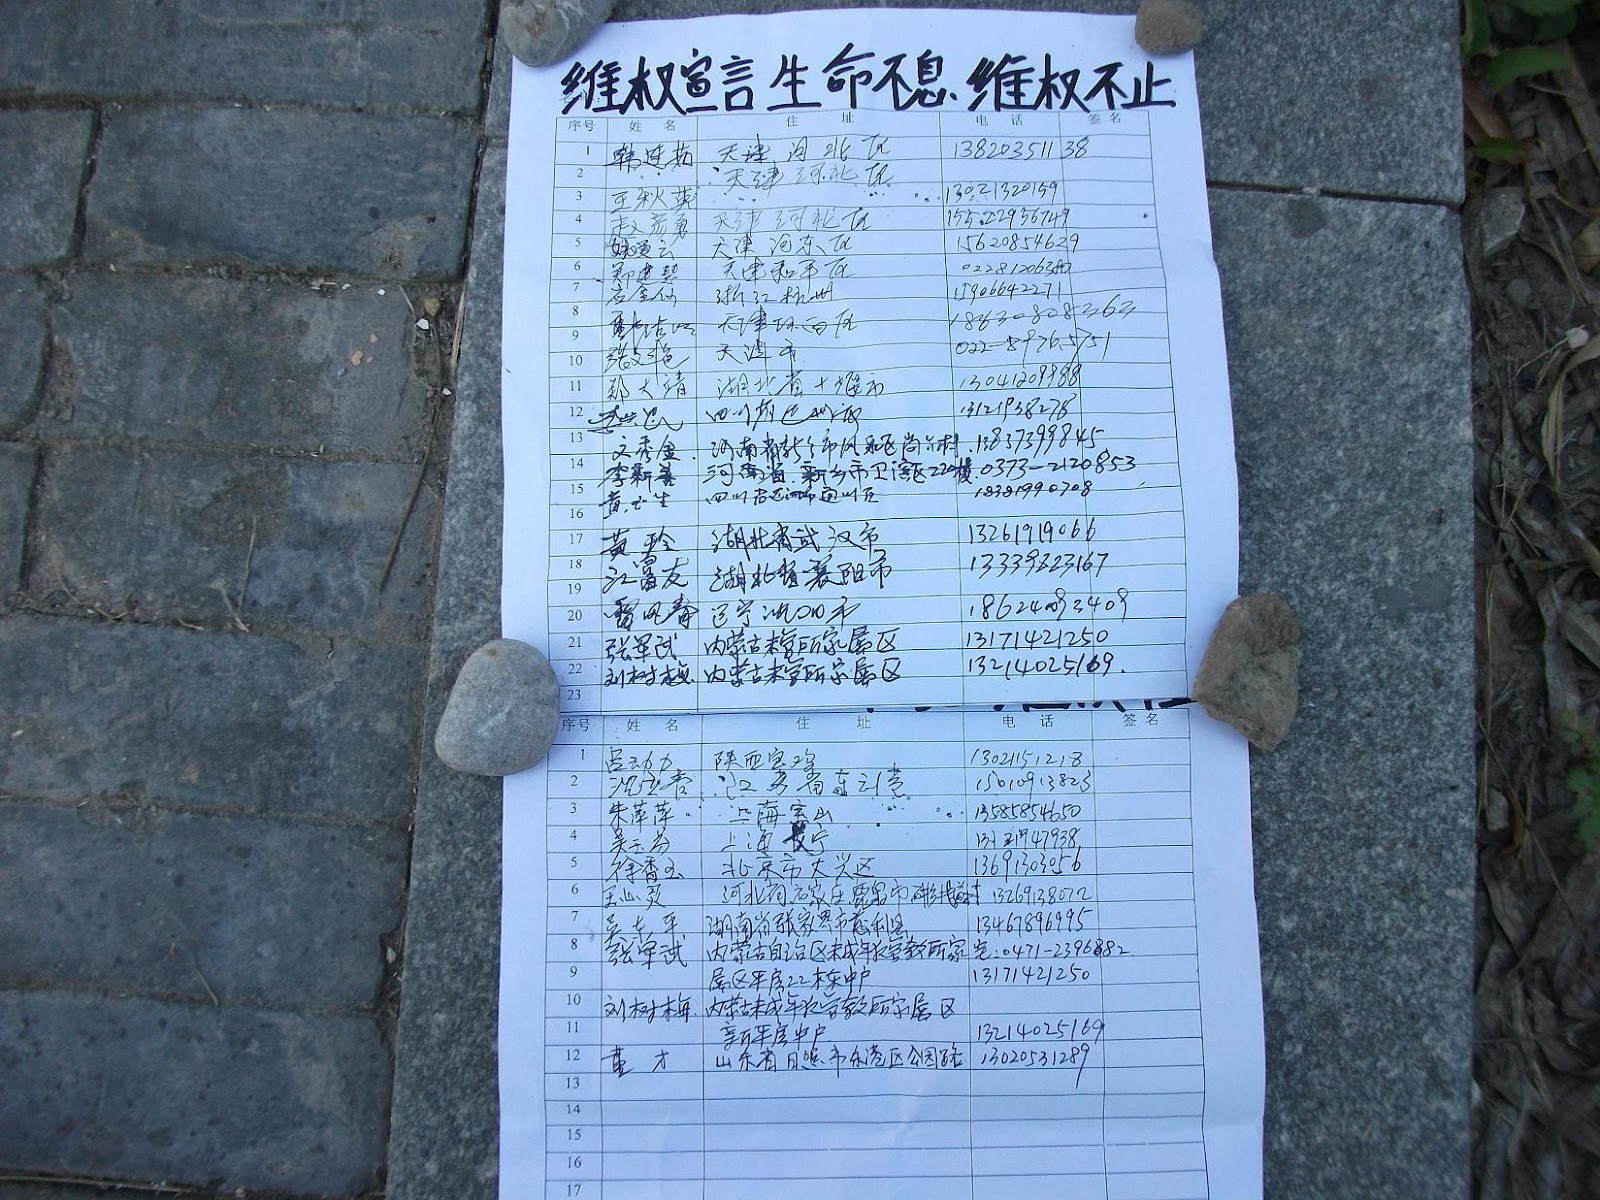 维权宣言 生命不息 维权不止
序号 姓名 住址 电话 签名
1 韩建茹 天津河北区 13820351138
2 天津河北区
3 王秋英 13021320159
4 赵彦勇 天津河北区 15522936749
5 姚 云 天津河东区 15620854629
6 郑建慧 天津和平区
7 金仙 浙江杭州 15906642271
8 天津河西区 18630808363
9
10 张文艳 天津市
11 郑大靖 湖北省十堰市 13041209988
12 四川省巴 13121938278
13 文秀金 河南省新乡市凤泉区尚 村 13837399845
14 李新美 河南省新乡市卫滨区22 楼 0373-2120853
15 黄 生 四川省达州市通川区 18381990708
16
17 黄玲 湖北省武汉市 13261919066
18 江富友 湖北省襄阳市 13339823167
19
20 雷 辽宁沈阳市 18624093409
21 张军武 内蒙古未管所家属区 13171421250
22 刘树梅 内蒙古未管所家属区 13214025169
23
序号 姓名 住址 电话 签名
1 吕动力 陕西宝鸡 13021151218
2 沈 春 江苏省 15010913823
3 朱萍萍 上海宝山 13585854650
4 吴玉芬 上海长宁
5 徐香玉 北京市大兴区 13691303056
6 王 河北省石家庄鹿泉市 村 13269138072
7 吴 平 湖南省张家界市慈利县 13467896995
8 张军武 内蒙古自治区未成年犯管教所家 宅:0471-2396882
9 属区平房22栋中户 13171421250
10 刘树梅 内蒙古未成年犯管教所家属区
11 新平房中户 13214025169
12 董才 山东省日照市东港区公园路 13020531289
13
14
15
16
17